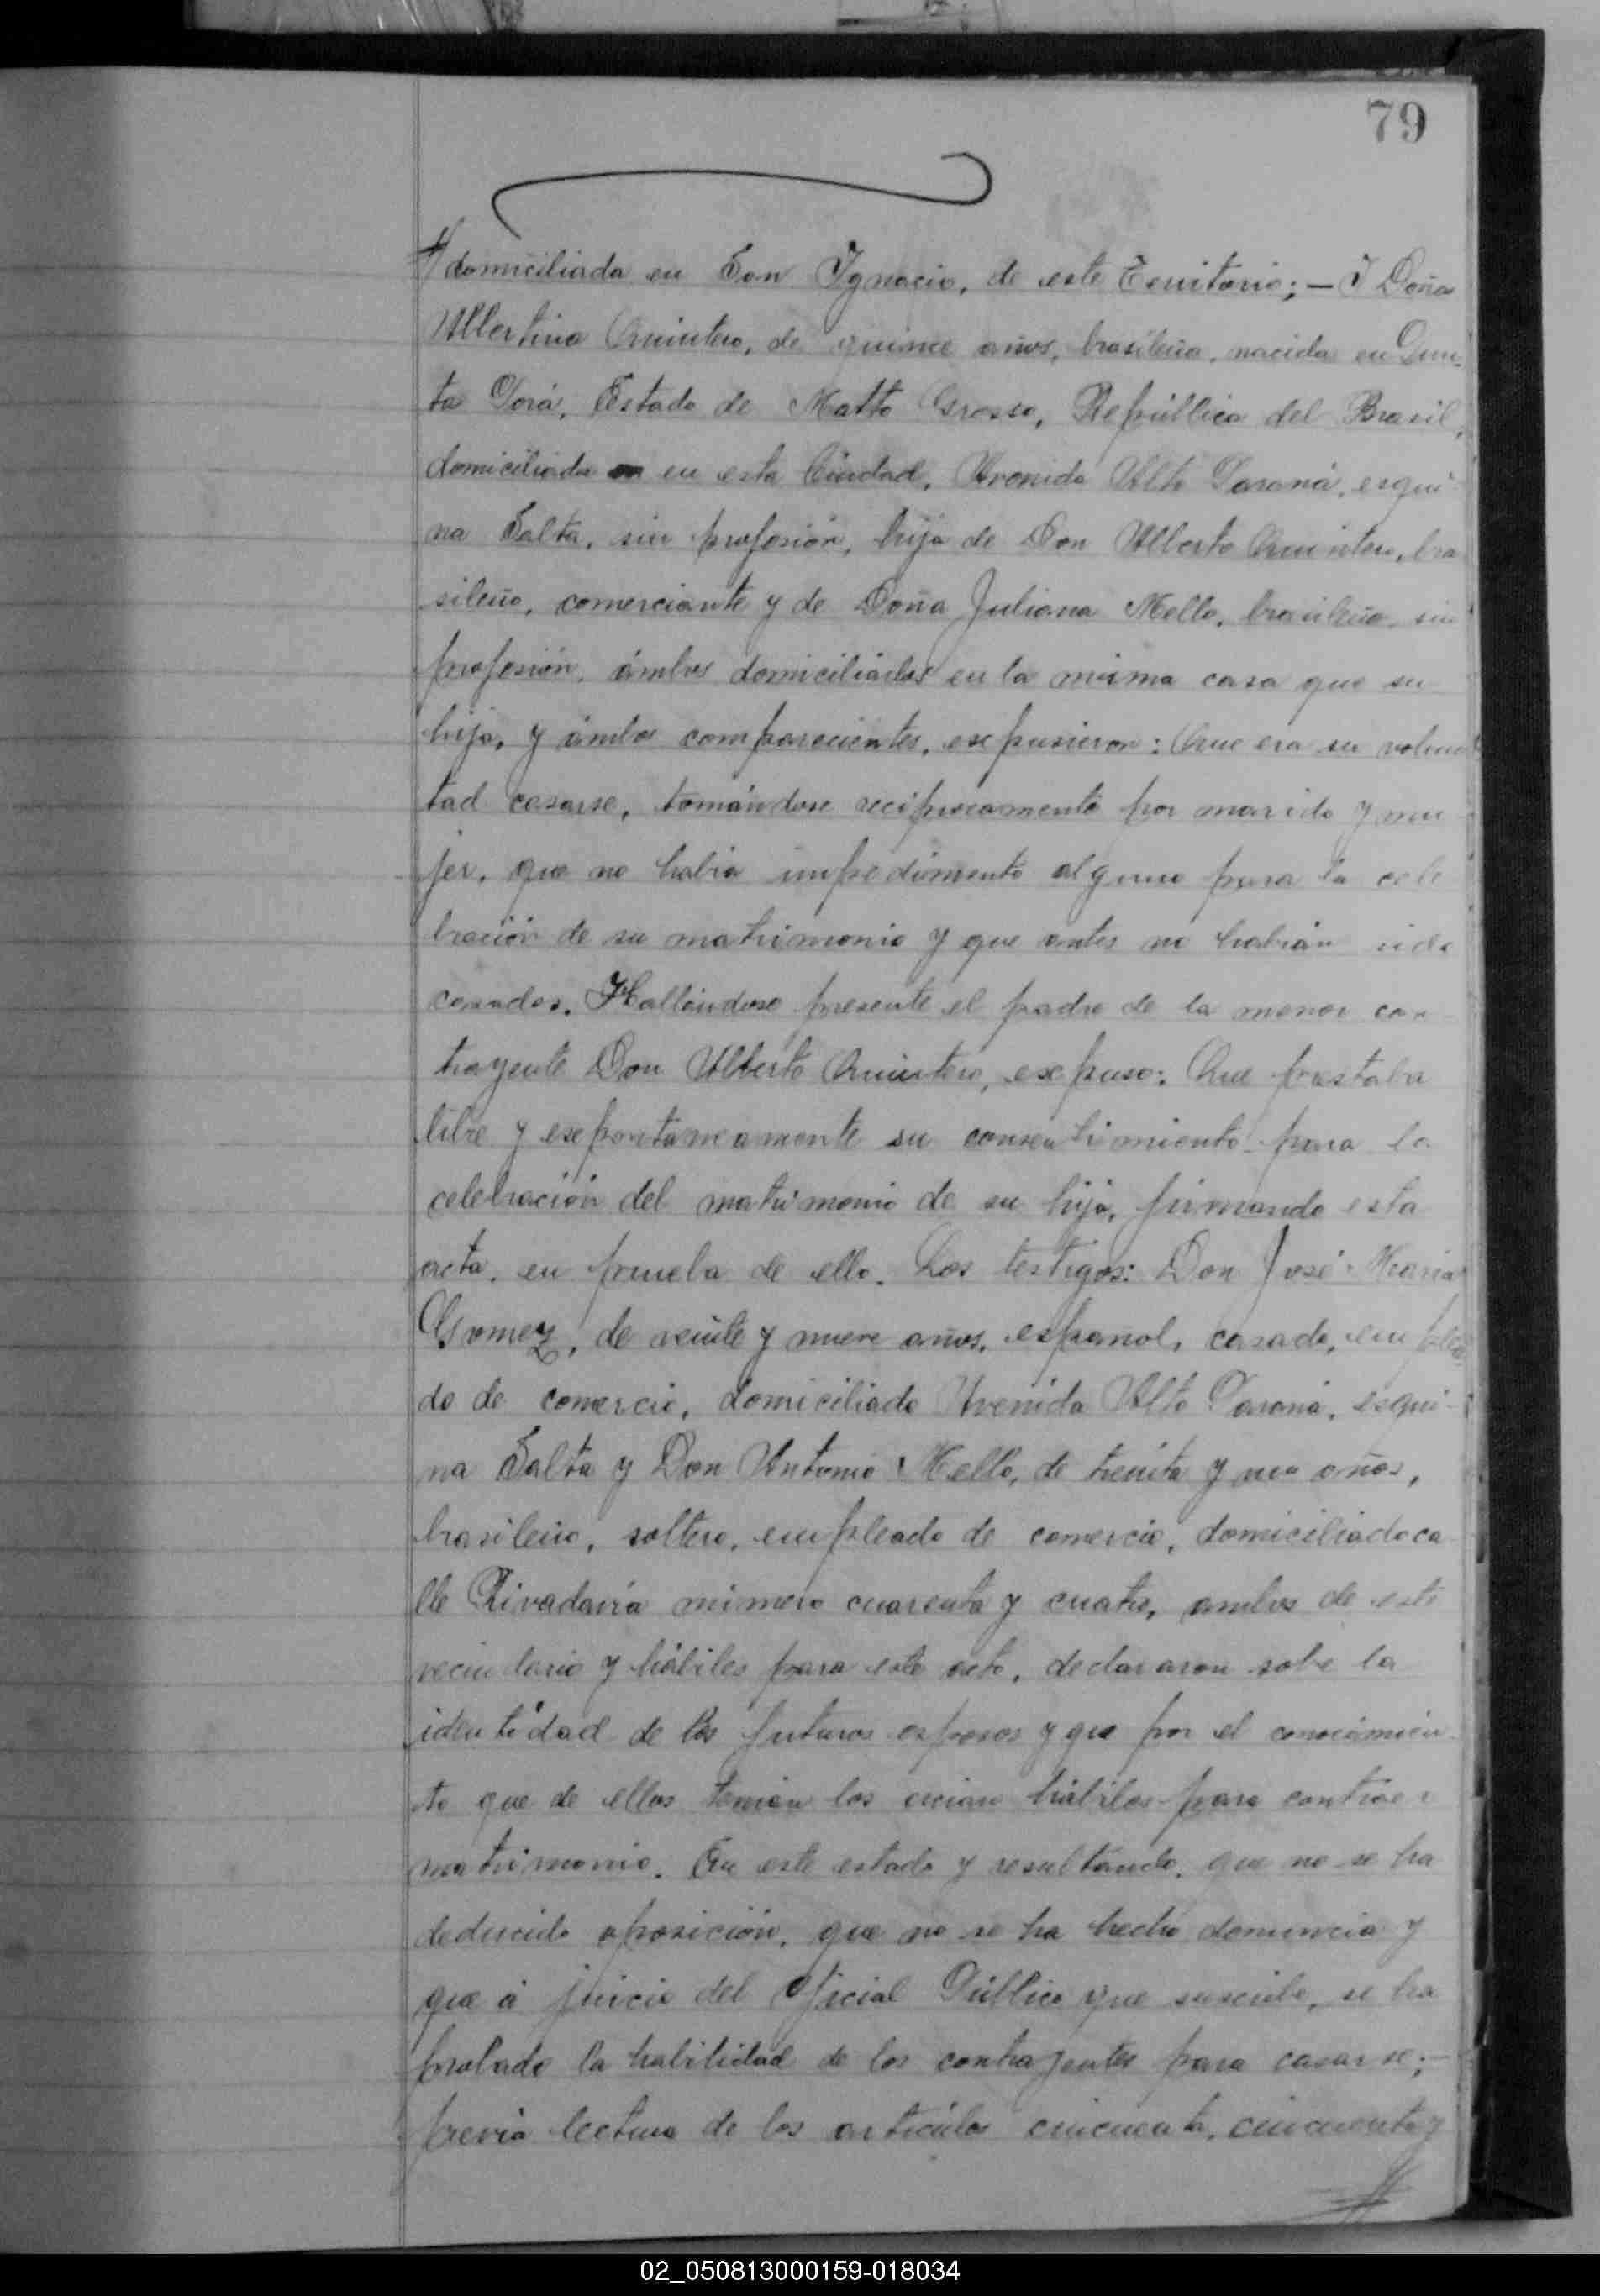 79
domiciliada en San Ignacio, de este Territorio;— I Doña
Albertina Quintero, de quince años, brasileña, nacida en Pun-
ta Porá, Estado de Matto Grosso, República del Brasil,
domiciliada en esta Ciudad, Avenida Alto Paraná, esqui-
na Salta, sin profesión, hija de Don Alberto Quintero, bra
sileño, comerciante y de Doña Juliana Mello, brasileña, sin
profesión, ámbos domiciliados en la misma casa que su
hija, y ámbos comparecientes, expusieron: Que era su volun
tad casarse, tomándose reciprocamente por marido y mu-
jer, que no habia impedimento alguno para la cele
bración de su matrimonio y que antes no habián sido
casados. Hallándose presente el padre de la menor con-
trayente Don Alberto Quintero, expuso: Que prestaba
libre y expontaneamente su consentimiento para la
celebración del matrimonio de su hija, firmando esta
acta, en prueba de ello. Los testigos: Don José Maria
Gomez, de veinte y nueve años, español, casado, emplea
do de comercio, domiciliado Avenida Alto Paraná, esqui-
na Salta y Don Antonio Mello, de treinta y un años,
brasileño, soltero, empleado de comercio, domiciliado ca
lle Rivadavia número cuarenta y cuatro, ambos de este
vecindario y hábiles para este acto, declararon sobe la
identidad de los futuros esposos y que por el conocimien-
to que de ellos tenian los creian hábiles para contraer
matrimonio. En este estado y resultando, que no se ha
deducido oposición, que no se ha hecho denuncia y
que á juicio del Oficial Público que suscribe, se ha
probado la habilidad de los contrayentes para casarse;—
previa lectura de los articulos cincuenta, cincuenta y
02_050813000159-018034